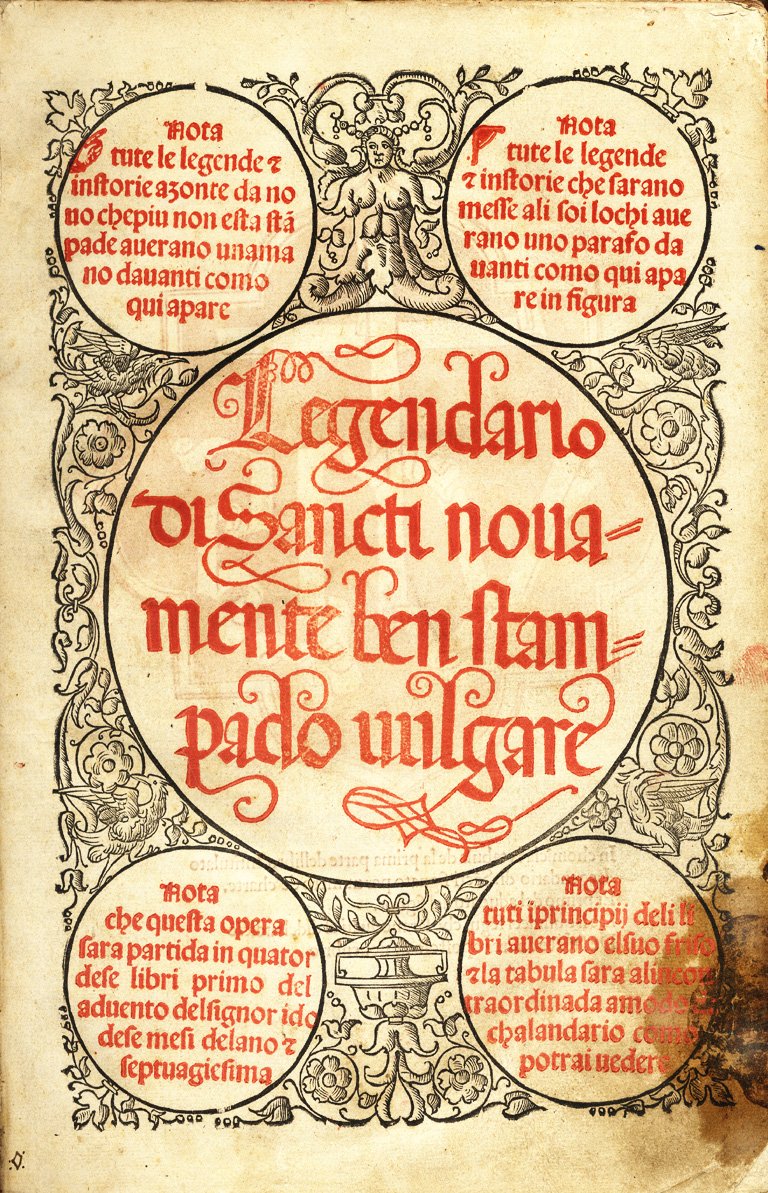 Nota
tute le legende ⁊
instorie azonte da no
uo chepiu non esta stā
pade auerano unama
no dauanti como
qui apare
Nota
tute le legende
⁊ instorie che sarano
messe ali soi lochi aue
rano uno parafo da
uanti como qui apa
re in figura
Legendario
di Sancti noua=
mente ben stam=
pado uulgare
Nota
che questa opera
sara partida in quator
dese libri primo del
aduento delsignor ido
dese mesi delano ⁊
septuagiesima
Nota
tuti iprincipij deli li
bri auerano elsuo friso
⁊la tabula sara alincon
traordinada amodo
chalandario como
potrai uedere